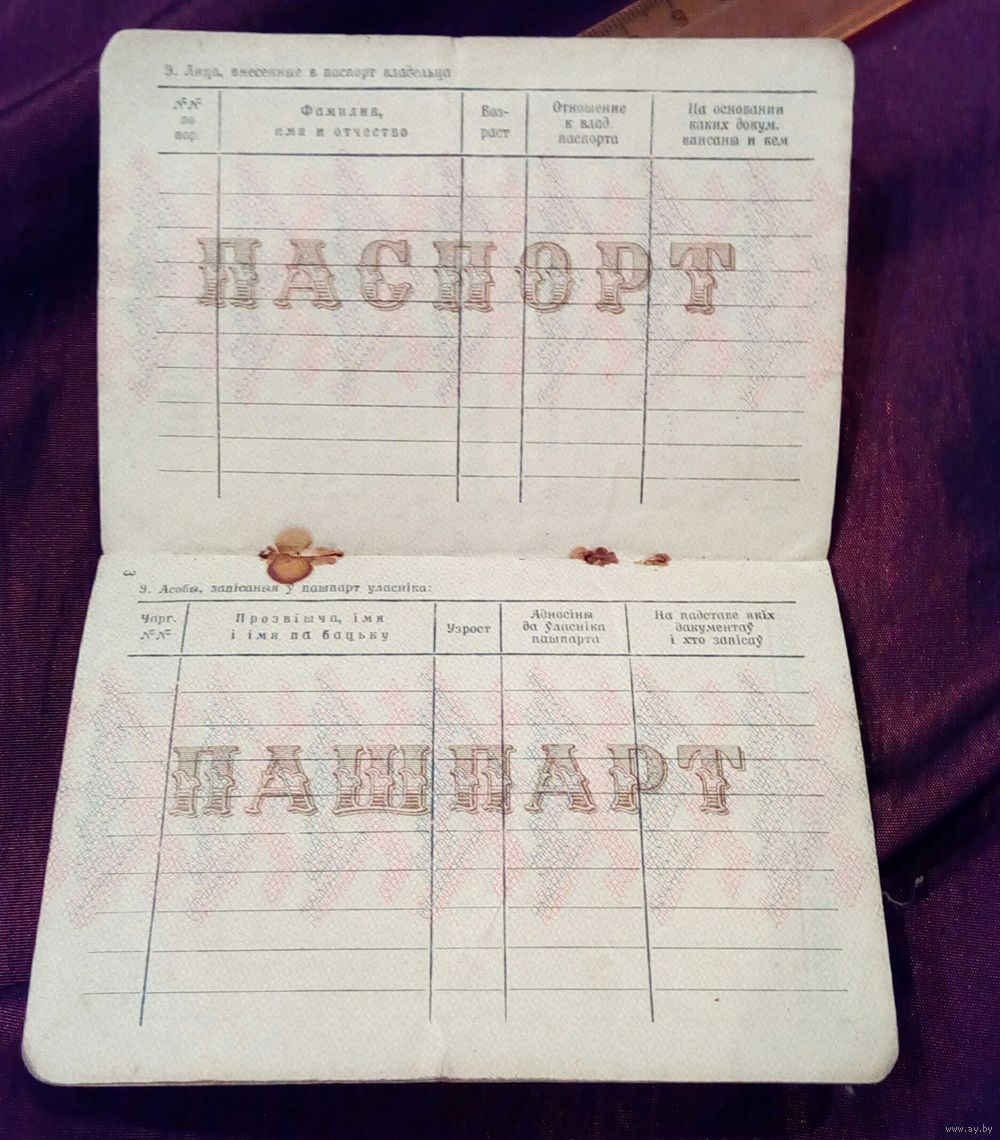 9. Лица, внесенные в паспорт владельца
№№
по
пор.
Фамилия,
имя и отчество
Воз-
раст
Отношение
к влад.
паспорта
На основании
каких докум.
вписаны и кем
ПАСПОРТ
3
9. Асобы, запісаныя ў пашпарт уласніка:
Чарг.
№№
Прозвішча, імя
і імя па бацьку
Узрост
Адносіны
да ўласніка
пашпарта
На падставе якіх
дакументаў
і хто запісаў
ПАШПАРТ
www.ay.by